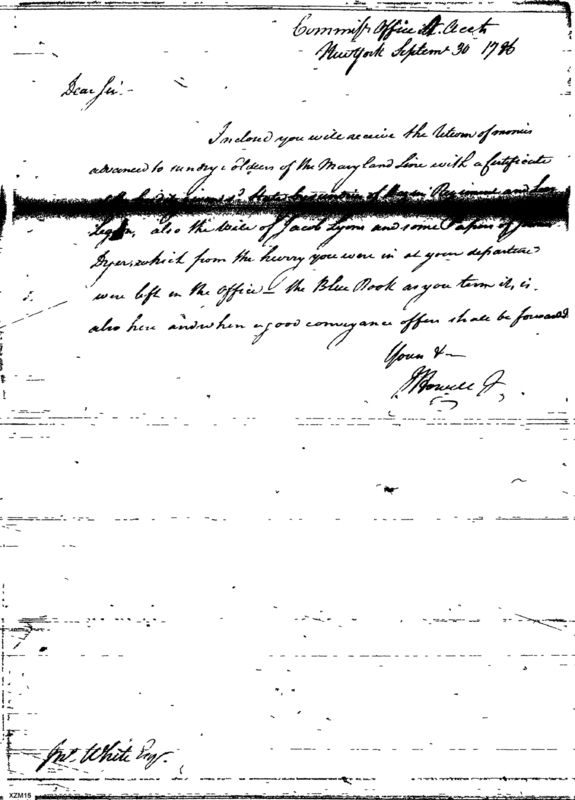 Commiss Office Acct
New York Septem 30 1786
Dear Sir
Inclosed you will receive the return of monies
advanced to sundry soldiers of the Maryland Line with a Certificate
Regiment and
Legion, also the Will of Jacob Lyons and some Papers of
Dyer, which from the hurry you were in at your departure
were left in the Office — the Blue Book as you term it, is
also here and when a good conveyance offers shall be forwarded
Yours &—
J Howell Jr
Jno. White Esqr.
XZM15